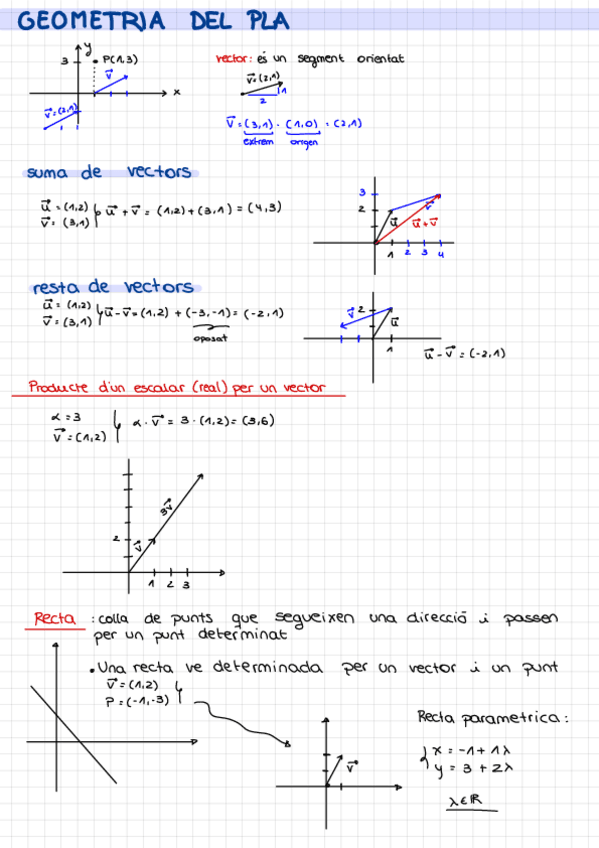 GEOMETRIA DEL PLA
y
3 P(1,3)
v⃗
x
v⃗=(2,1)
vector: és un segment orientat
v⃗=(2,1)
1
2
v⃗=(3,1)-(1,0)=(2,1)
extrem origen
suma de vectors
u⃗=(1,2)
v⃗=(3,1)
u⃗+v⃗=(1,2)+(3,1)=(4,3)
3
2
u⃗ v⃗
u⃗+v⃗
1 2 3 4
resta de vectors
u⃗=(1,2)
v⃗=(3,1)
u⃗-v⃗=(1,2)+(-3,-1)=(-2,1)
oposat
v⃗ 2
u⃗
1
u⃗-v⃗=(-2,1)
Producte d'un escalar (real) per un vector
α=3
v⃗=(1,2)
α·v⃗=3·(1,2)=(3,6)
3v⃗
2
v⃗
1 2 3
Recta: colla de punts que segueixen una direcció i passen
per un punt determinat
•Una recta ve determinada per un vector i un punt
v⃗=(1,2)
P=(-1,-3)
v⃗
Recta parametrica:
x=-1+1λ
y=3+2λ
λ∈ℝ